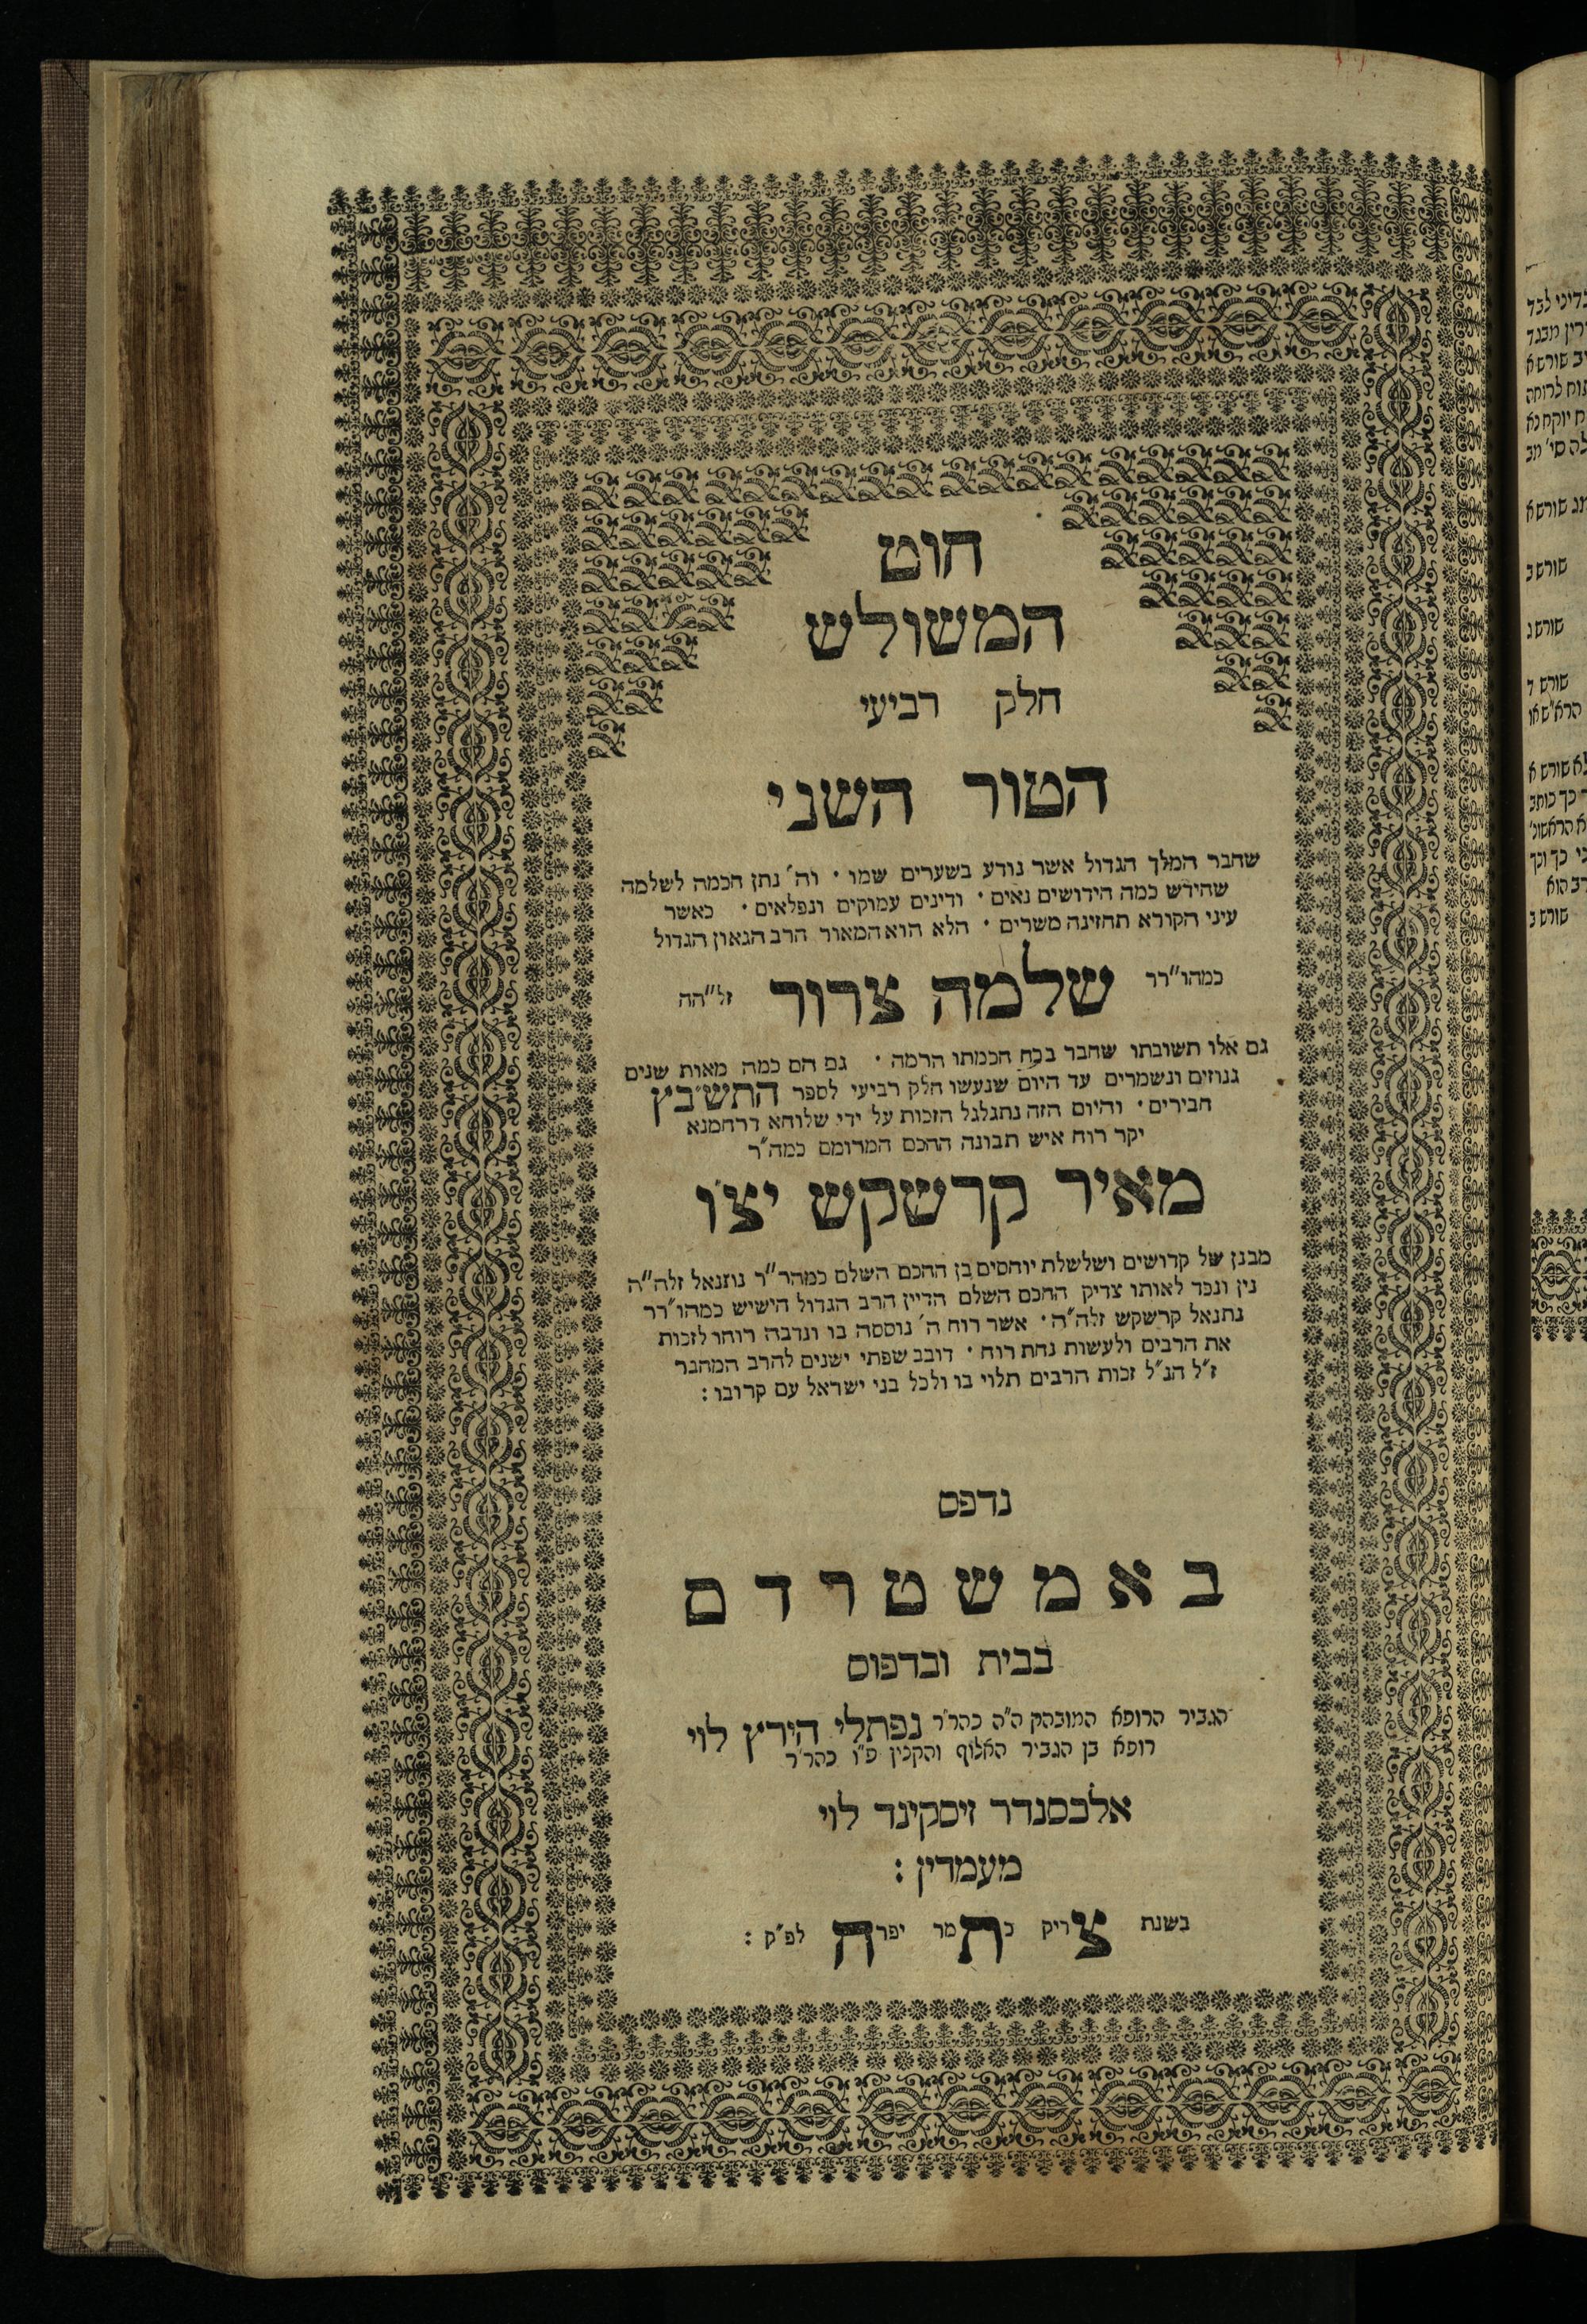 חוט
המשולש
חלק רביעי
הטור השני
שחבר המלך הגדול אשר נודע בשערים שמו • וה׳ נתן חכמה לשלמה
שחידש כמה חידושים נאים • ודינים עמוקים ונפלאים • כאשר
עיני הקורא תחזינה משרים • הלא הוא המאור הרב הגאון הגדול
כמהו״רר שלמה צרור זל״הה
גם אלו תשובתו שחבר בכח חכמתו הרמה • גם הם כמה מאות שנים
גנוזים ונשמרים עד היום שנעשו חלק רביעי לספר התש״בץ
חבירים • והיום הזה נתגלגל הזכות על ידי שלוחא דרחמנא
יקר רוח איש תבונה החכם המרומם כמה״ר
מאיר קרשקש יצ״ו
מבנן של קדושים ושלשלת יוחסים בן החכם השלם כמהר״ר נתנאל זלה״ה
נין ונכד לאותו צדיק החכם השלם הדיין הרב הגדול הישיש כמהו׳רר
נתנאל קרשקש זלה״ה • אשר רוח ה׳ נוססה בו ונדבה רוחו לזכות
את הרבים ולעשות נחת רוח • דובב שפתי ישנים להרב המחבר
ז״ל הנ״ל זכות הרבים תלוי בו ולכל בני ישראל עם קרובו :
נדפס
באמשטרדם
בבית ובדפוס
הגביר הרופא המובהק ה״ה כהר״ר נפתלי הירץ לוי
רופא בן הגביר האלוף והקצין פ״ו כהר״ר
אלכסנדר זיסקינד לוי
מעמדין :
בשנת צדיק כתמר יפרח לפ״ק :
בדיני לבד
שורש א
שורש ב
שורש ג
שורש ד
שורש א
כך כותב
שורש ב